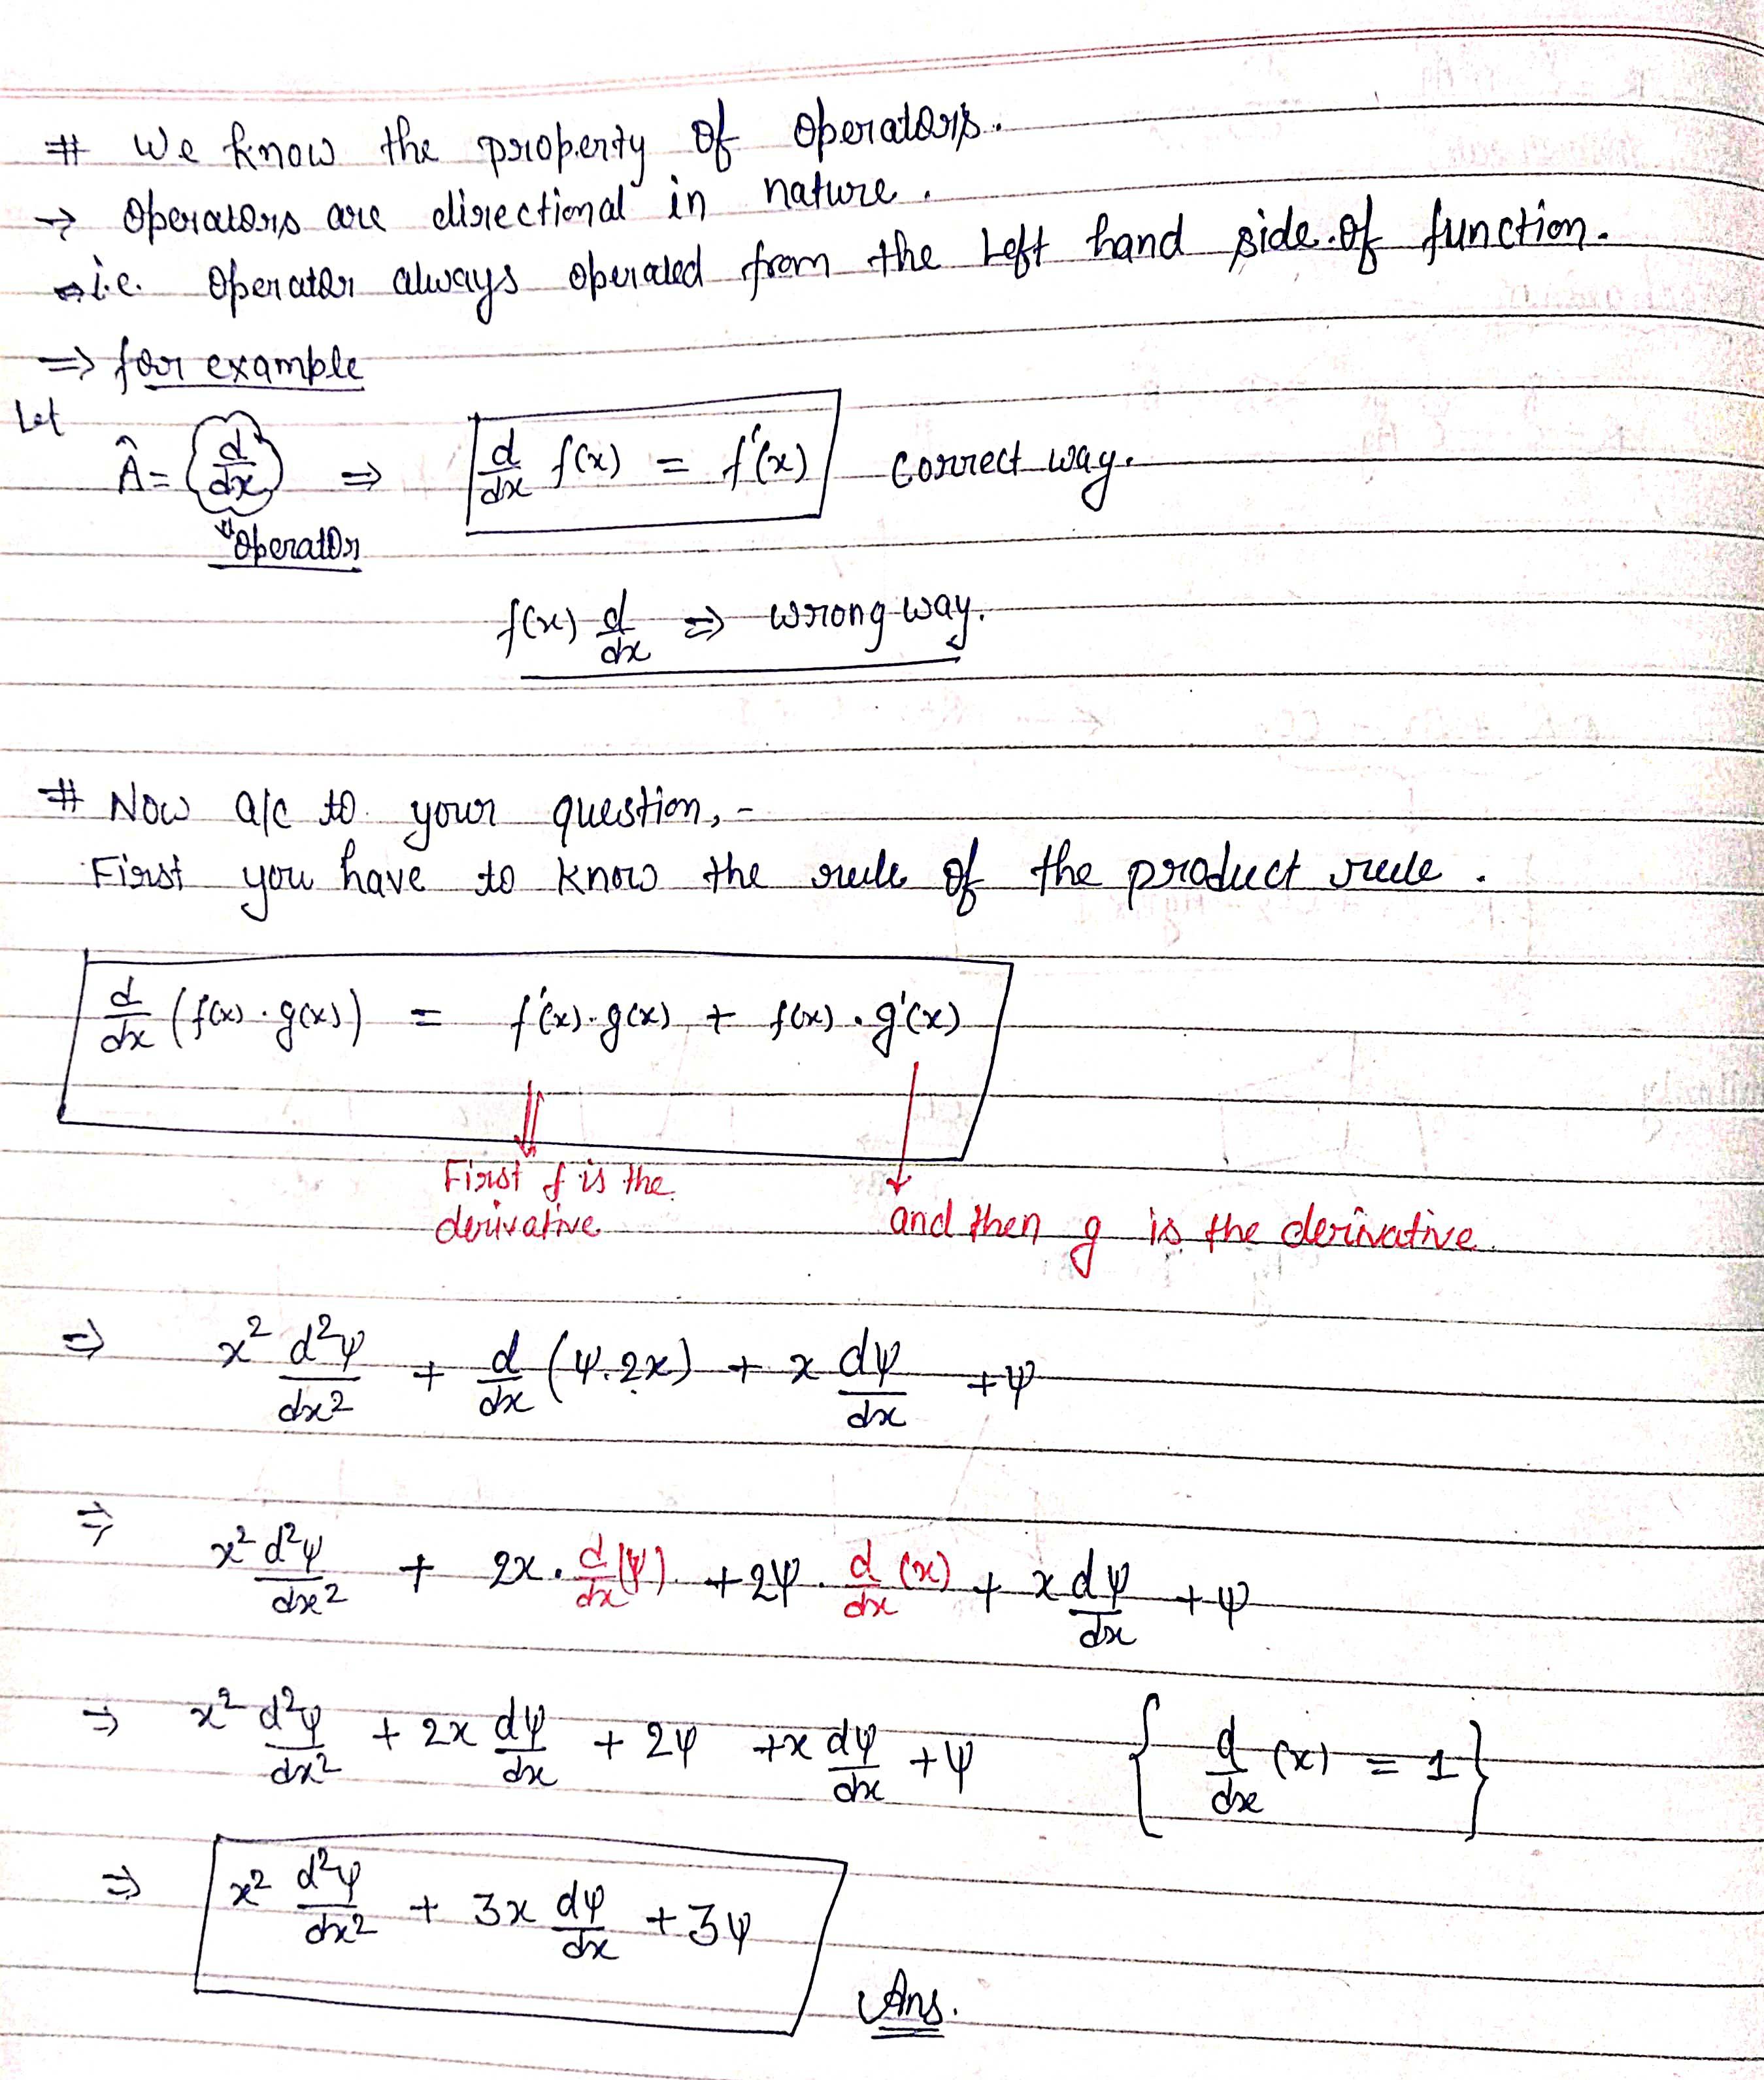 # We know the property of operators.
→ Operators are directional in nature.
i.e. Operator always operated from the Left hand side of function.
⇒ for example
Let
Â = (d/dx) ⇒ d/dx f(x) = f'(x) Correct way.
Operator
f(x) d/dx ⇒ wrong way.
# Now a/c to your question,-
First you have to know the rule of the product rule.
d/dx (f(x)·g(x)) = f'(x)·g(x) + f(x)·g'(x)
First f is the
derivative
and then g is the derivative.
⇒ x² d²ψ/dx² + d/dx (ψ.2x) + x dψ/dx + ψ
⇒ x² d²ψ/dx² + 2x. d/dx (ψ) + 2ψ. d/dx (x) + x dψ/dx + ψ
⇒ x² d²ψ/dx² + 2x dψ/dx + 2ψ + x dψ/dx + ψ { d/dx (x) = 1 }
⇒ x² d²ψ/dx² + 3x dψ/dx + 3ψ
Ans.